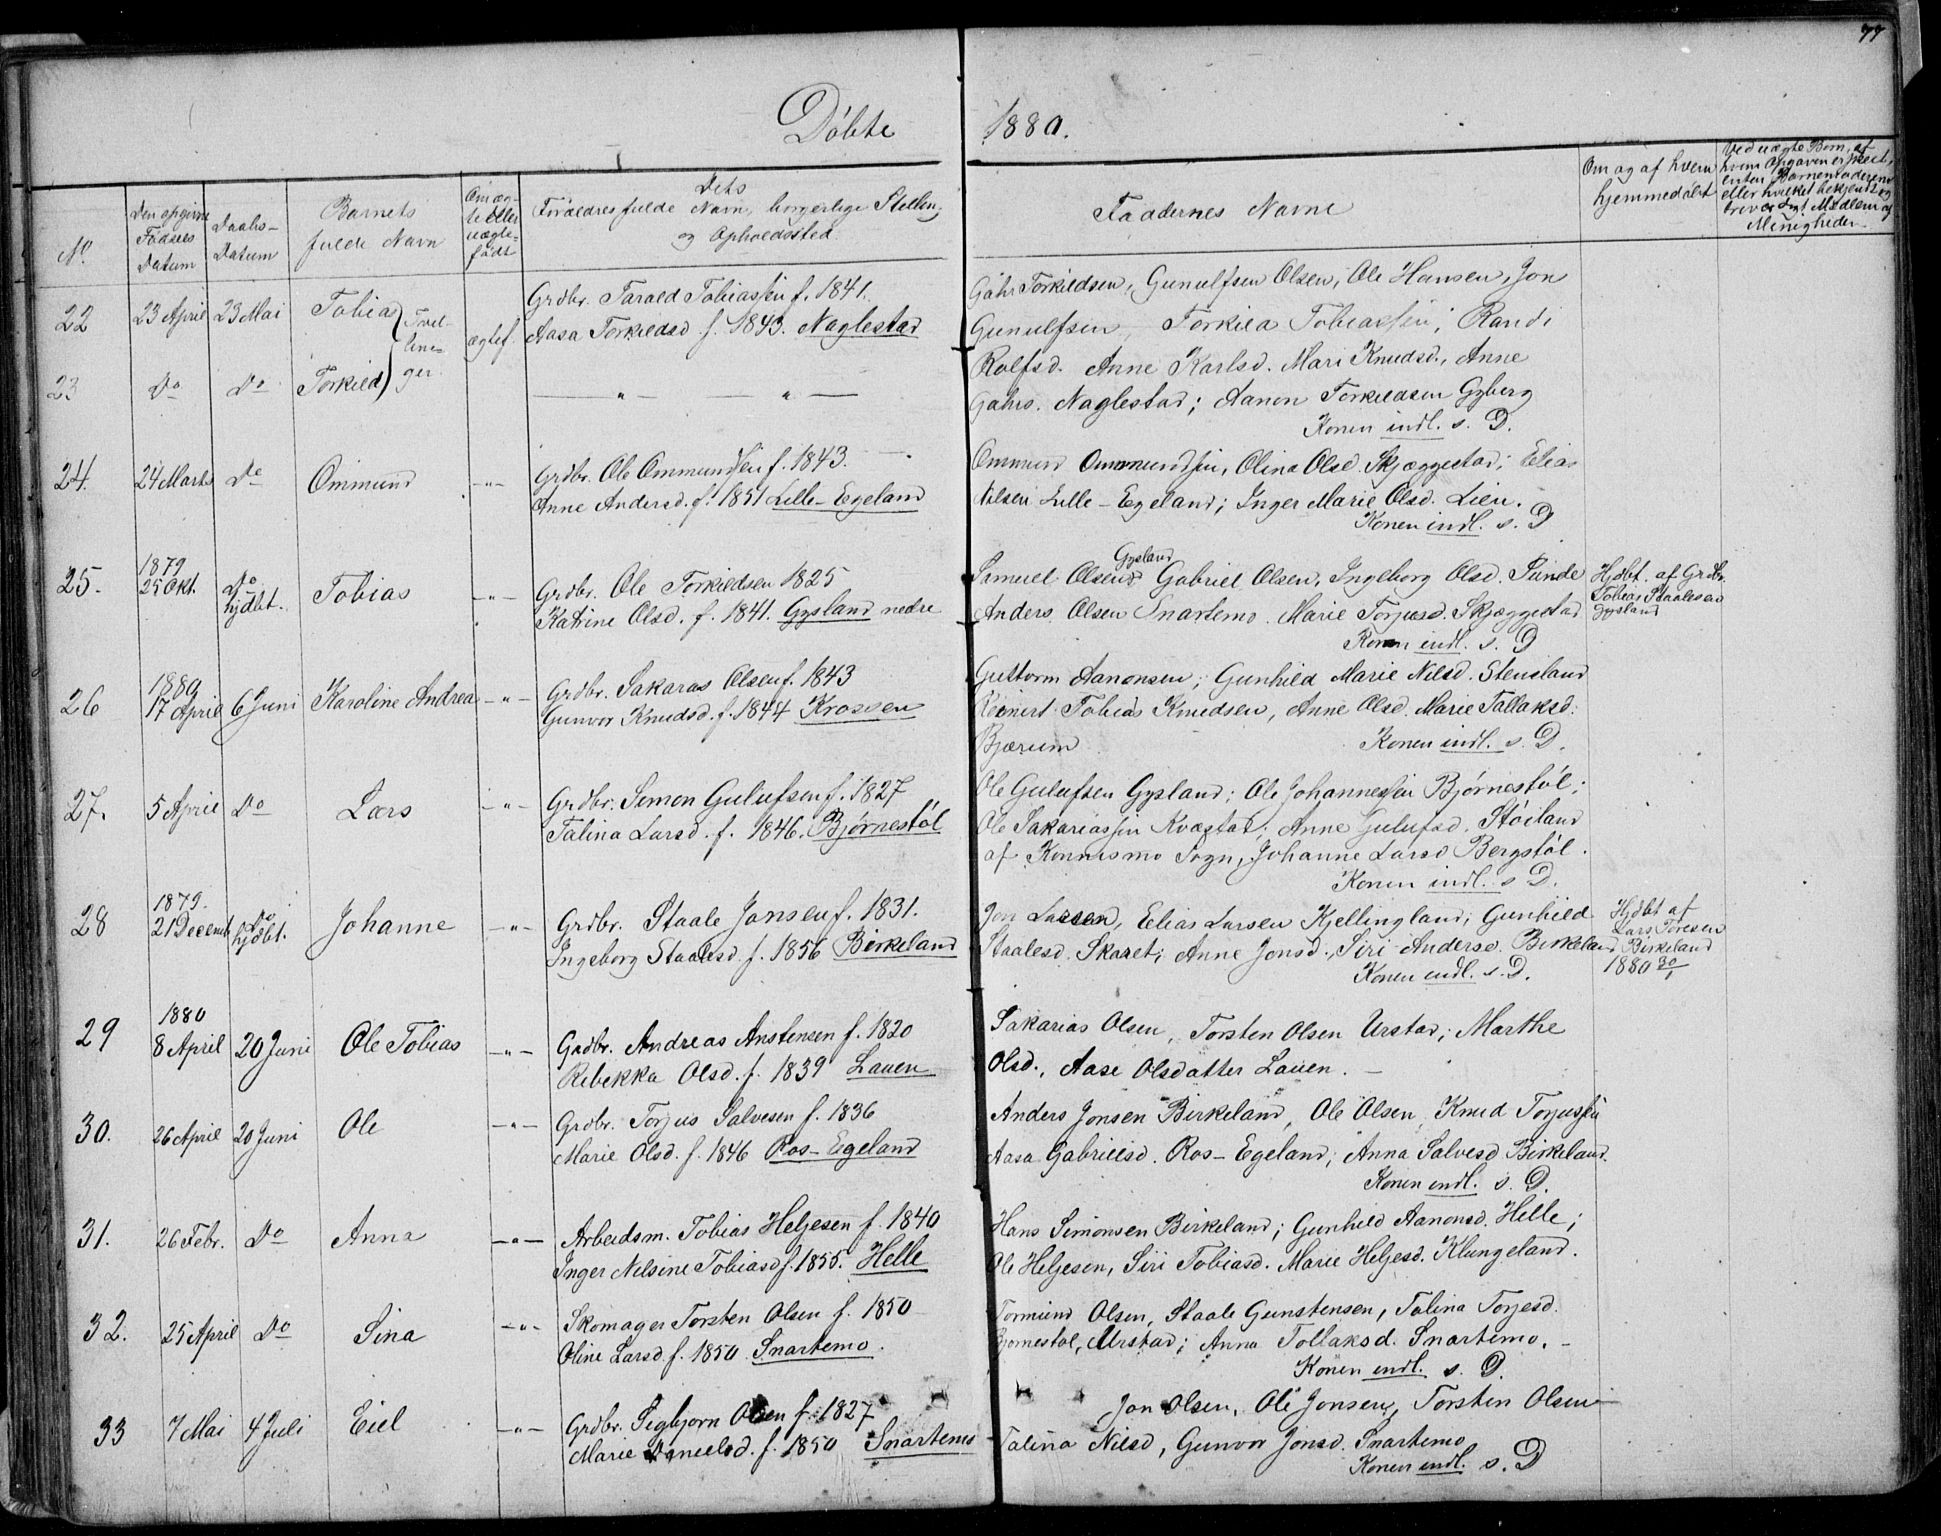 77
Döbte 1880.
No.
Den opgivne Fødsels Datum
Daabs-Datum
Barnets fulde Navn
Om ægte eller uægte født
Dets Forældres fulde Navn, borgerlige Stilling og Opholdssted
Faddernes Navne
Om og af hvem hjemmedøbt
Ved uægte Børn, af hvem Opgaven er skeet,
22 23 April 23 Mai Tobias Tvillinger ægtef. Grdbr. Tarald Tobiassen f. 1841.
Aasa Torkildsd f. 1843. Naglestad
23 Do Do Torkild — " — — " —
Gahr Torkildsen, Gunulfsen Olsen, Ole Hansen, Jon
Gunulfsen, Torkild Tobiassen, Randi
Rolfsd. Anne Karlsd. Mari Knudsd., Anne
Gahrs. Naglestad; Aanon Torkildsen Gyberg
Konen indl. s. D.
24. 24 Marts Do Ommund — " — Grdbr. Ole Ommundsen f. 1843.
Anne Andersd. f. 1851 Lille-Egeland
Ommund Ommundsen, Olina Olsd. Skjæggestad; Elias
Nilsen Lille-Egeland; Inger Marie Olsd. Lien.
Konen indl. s. D
25. 1879 25 Okt. Do hjdbt. Tobias — " — Grdbr. Ole Torkildsen 1825
Katrine Olsd. f. 1841. Gysland nedre
Gysland
Samuel Olsen Gabriel Olsen, Ingeborg Olsd. Sunde
Anders Olsen Snartemo. Marie Torjusd. Skjæggestad
Konen indl. s. D
Hjdbt. af Grdbr.
Tobias Staalesen
Gysland
26 1880 17 April 6 Juni Karoline Andrea — " — Grdbr. Sakarias Olsen f. 1843
Gunvor Knudsd. f. 1844 Krossen
Guttorm Aanonsen; Gunhild Marie Nilsd. Stensland
Reinert Tobias Knudsen, Anne Olsd. Marie Tallaksd.
Bjærum Konen indl. s. D.
27. 5 April Do Lars — " — Grdbr. Simon Gulufsen f. 1827
Talina Larsd. f. 1846. Bjørnestøl
Ole Gulufsen Gysland; Ole Johannessen Bjørnestøl;
Ole Sakariassen Kvægstad; Anne Gulufsd. Støiland
af Konnismo Sogn, Johanne Larsd Bergstøl.
Konen indl. s D.
28 1879. 21 Decemb. Do hjdbt. Johanne — " — Grdbr. Staale Jonsen f. 1831.
Ingeborg Staalesd. f. 1856 Birkeland
Jon Larsen, Elias Larsen Kjellingland; Gunhild
Staalesd. Skaret; Anne Jonsd., Siri Andersd. Birkeland
Konen indl. s. D.
Hjdbt af
Lars Toresen
Birkeland
1880 30/1
29 1880 8 April 20 Juni Ole Tobias — " — Grdbr. Andreas Anstensen f. 1820
Rebekka Olsd. f. 1839 Lauen
Sakarias Olsen, Torsten Olsen Urstad; Marthe
Olsd., Aase Olsdatter Lauen. —
30. 26 April 20 Juni Ole — " — Grdbr. Torjus Salvesen f. 1836
Marie Olsd. f. 1846 Ros-Egeland
Anders Jonsen Birkeland, Ole Olsen, Knud Torjussen
Aasa Gabrielsd. Ros-Egeland; Anna Salvesd Birkeland.
Konen indl. s. D.
31. 26 Febr. Do Anna — " — Arbeidsm. Tobias Heljesen f. 1840
Inger Nilsine Tobiasd f. 1855. Helle
Hans Simonsen Birkeland; Gunhild Aanonsd. Helle;
Ole Heljesen, Siri Tobiasd. Marie Heljesd. Klungeland.
32. 25 April Do Sina — " — Skomager Torsten Olsen f. 1850
Oline Larsd. f. 1850. Snartemo.
Tormund Olsen, Staale Gunstensen, Talina Torjesd.
Bjornestøl, Urstad; Anna Tollaksd. Snartemo. —
Konen indl. s. D.
33 7 Mai 4 Juli Eiel — " — Grdbr. Segbjorn Olsen f. 1827
Marie Danielsd. f. 1850 Snartemo
Jon Olsen, Ole Jonsen, Torsten Olsen
Talina Nilsd, Gunvor Jonsd. Snartemo
Konen indl. s. D